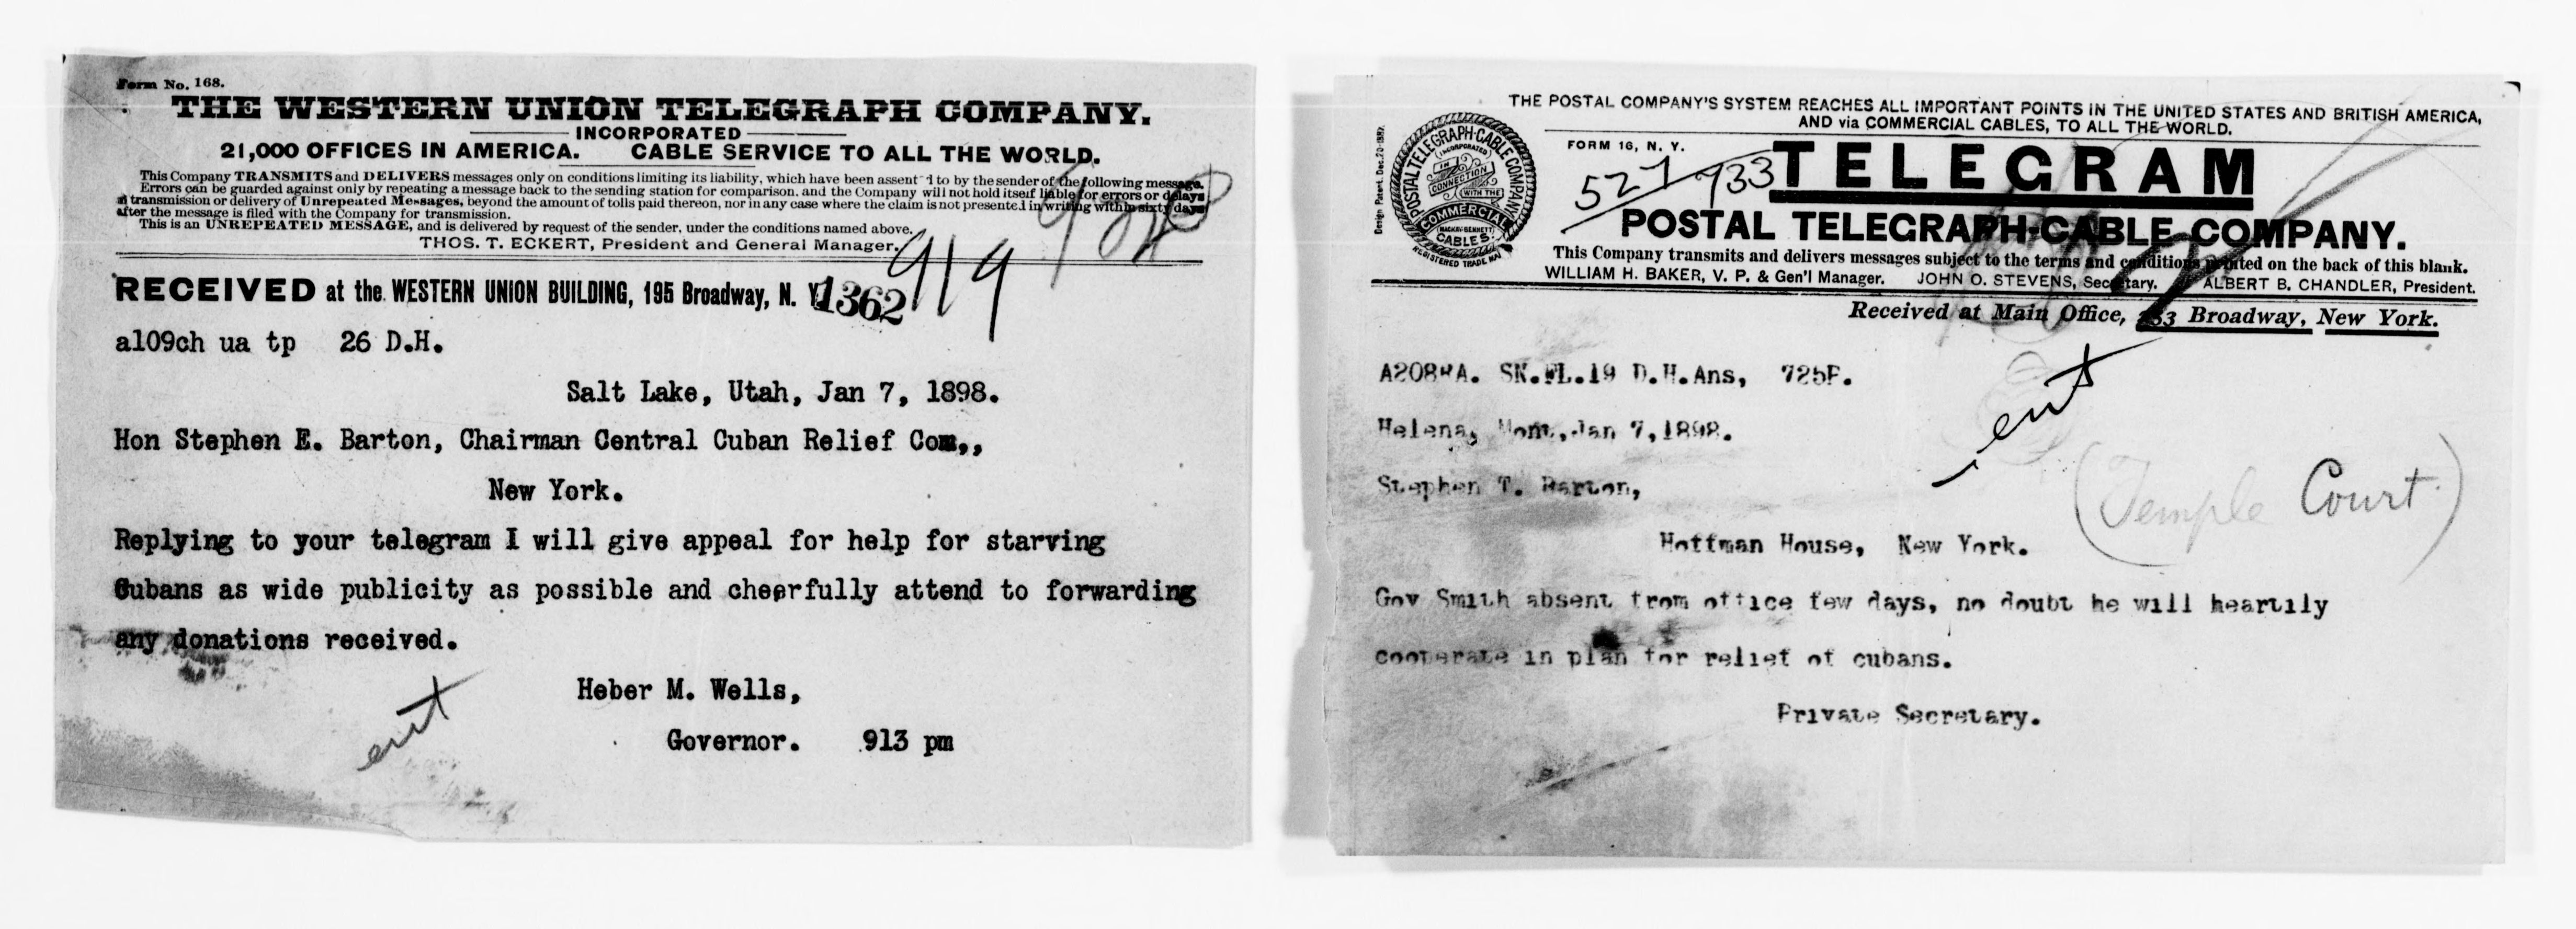 Form No. 168.
THE WESTERN UNION TELEGRAPH COMPANY.
INCORPORATED
21,000 OFFICES IN AMERICA. CABLE SERVICE TO ALL THE WORLD.
This Company TRANSMITS and DELIVERS messages only on conditions limiting its liability, which have been assent d to by the sender of the following message.
Errors can be guarded against only by repeating a message back to the sending station for comparison, and the Company will not hold itself liable for errors or delays
in transmission or delivery of Unrepeated Messages, beyond the amount of tolls paid thereon, nor in any case where the claim is not presented in writing within sixty days
after the message is filed with the Company for transmission.
This is an UNREPEATED MESSAGE, and is delivered by request of the sender, under the conditions named above.
THOS. T. ECKERT, President and General Manager.
919
RECEIVED at the WESTERN UNION BUILDING, 195 Broadway, N. Y. 1362
a109ch ua tp 26 D.H.
Salt Lake, Utah, Jan 7, 1898.
Hon Stephen E. Barton, Chairman Central Cuban Relief Com,,
New York.
Replying to your telegram I will give appeal for help for starving
Cubans as wide publicity as possible and cheerfully attend to forwarding
any donations received.
Heber M. Wells,
Governor. 913 pm
ent
THE POSTAL COMPANY'S SYSTEM REACHES ALL IMPORTANT POINTS IN THE UNITED STATES AND BRITISH AMERICA,
AND via COMMERCIAL CABLES, TO ALL THE WORLD.
Design Patent. Dec. 20 1887.
POSTAL TELEGRAPH-CABLE COMPANY
(INCORPORATED)
IN
CONNECTION
WITH THE
COMMERCIAL
(MACKAY-BENNETT)
CABLES.
REGISTERED TRADE MA
FORM 16, N. Y.
527 733
TELEGRAM
POSTAL TELEGRAPH-CABLE COMPANY.
This Company transmits and delivers messages subject to the terms and conditions printed on the back of this blank.
WILLIAM H. BAKER, V. P. & Gen'l Manager. JOHN O. STEVENS, Secretary. ALBERT B. CHANDLER, President.
Received at Main Office, 253 Broadway, New York.
SK.FL.19 D.H.Ans, 725P.
ent
Helena, Mont, Jan 7,1898.
Stephen T. Barton,
(Temple Court)
Hoffman House, New York.
Gov Smith absent from office few days, no doubt he will heartily
cooperate in plan for relief of cubans.
Private Secretary.